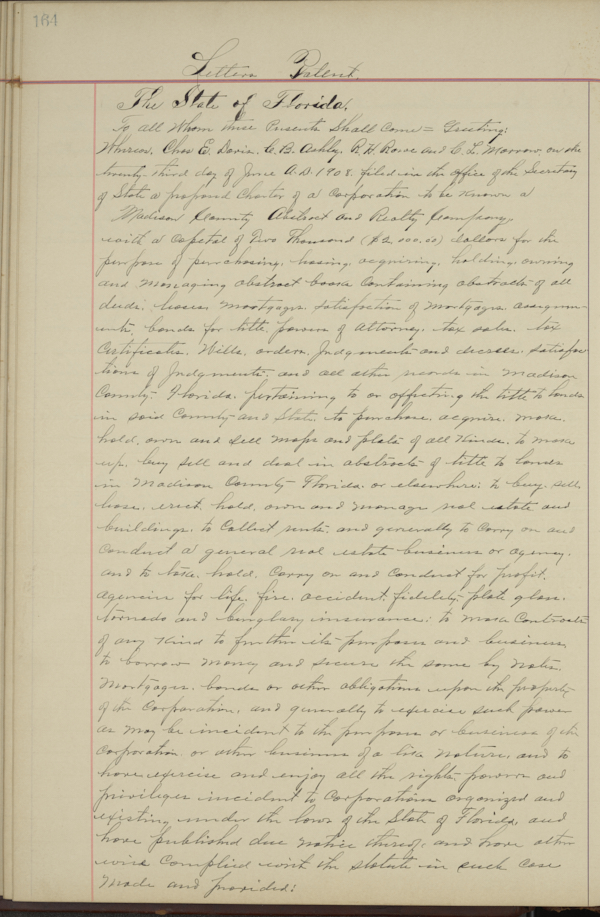 184
Letters Patent.
The State of Florida.
To all Whom these Presents Shall Come = Greeting:
Whereas, Chas E. Davis. C. B. Ashley. R. H. Rowe and C. L. Morrow, on the
twenty-third day of June A.D. 1908, filed in the office of the Secretary
of State a proposed Charter of a Corporation to be known a
Madison County Abstract and Realty Company,
with a Capital of Two Thousand ($2,000.00) dollars for the
purpose of purchasing, leasing, acquiring, holding, owning
and managing abstract books Containing abstracts of all
deeds, leases, Mortgages, satisfaction of Mortgages assignm-
ents, bonds for title, powers of Attorney, tax sales, tax
Certificates, Wills, orders, Judgments and decrees, satisfac
tions of Judgments, and all other records in Madison
County Florida, pertaining to or affecting the title to lands
in said County and State, to purchase, acquire, make,
hold, own and sell maps and plats of all Kinds, to make
up, buy sell and deal in abstracts of title to lands
in Madison County Florida, or elsewhere; to buy, sell
lease, erect, hold, own and manage real estate and
buildings, to Collect rents, and generally to Carry on and
Conduct a general real estate business or agency.
and to take, hold, Carry on and Conduct for profit,
agencies for life, fire, accident, fidelity, plate glass,
tornado and burglary insurance; to make Contracts
of any Kind to further its purposes and business,
to borrow money and secure the same by Notes,
Mortgages, bonds or other obligations upon the property
of the Corporation, and generally to exercise such powers
as may be incident to the purposes or business of the
Corporation or other business of a like nature, and to
have exercise and enjoy all the rights, powers and
privileges incident to Corporations organized and
existing under the laws of the State of Florida, and
have published due notice thereof, and have other
wise Complied with the statute in such Case
Made and provided: